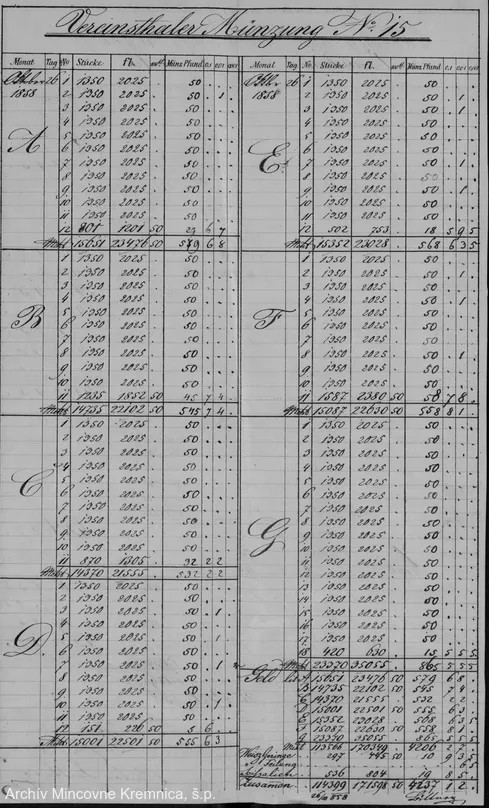 Vereinsthaler Münzung No. 15
Monat Tag No Stücke fl. Münz Pfund 0.1 0.01 0.001
October 26 1 1350 2025 . 50 . . .
1858 2 1350 2025 . 50 . 1 .
A
3 1350 2025 . 50 . . .
4 1350 2025 . 50 . . .
5 1350 2025 . 50 . . .
6 1350 2025 . 50 . . .
7 1350 2025 . 50 . . .
8 1350 2025 . 50 . . .
9 1350 2025 . 50 . . .
10 1350 2025 . 50 . . .
11 1350 2025 . 50 . . .
12 801 1201 50 29 6 7
15651 23476 50 579 6 8
B
1 1350 2025 . 50 . . .
2 1350 2025 . 50 . . .
3 1350 2025 . 50 . . .
4 1350 2025 . 50 . . .
5 1350 2025 . 50 . . .
6 1350 2025 . 50 . . .
7 1350 2025 . 50 . . .
8 1350 2025 . 50 . . .
9 1350 2025 . 50 . . .
10 1350 2025 . 50 . . .
11 1235 1852 50 45 7 4
14735 22102 50 545 7 4
C
1 1350 2025 . 50 . . .
2 1350 2025 . 50 . . .
3 1350 2025 . 50 . . .
4 1350 2025 . 50 . . .
5 1350 2025 . 50 . . .
6 1350 2025 . 50 . . .
7 1350 2025 . 50 . . .
8 1350 2025 . 50 . . .
9 1350 2025 . 50 . . .
10 1350 2025 . 50 . . .
11 870 1305 . 32 2 2
14370 21555 . 532 2 2
D
1 1350 2025 . 50 . . .
2 1350 2025 . 50 . . .
3 1350 2025 . 50 . 1 .
4 1350 2025 . 50 . . .
5 1350 2025 . 50 . 1 .
6 1350 2025 . 50 . . .
7 1350 2025 . 50 . 1 .
8 1350 2025 . 50 . . .
9 1350 2025 . 50 . . .
10 1350 2025 . 50 . 1 .
11 1350 2025 . 50 . . .
12 151 226 50 5 6
15001 22501 50 555 6 3
Monat Tag No. Stücke fl. Münz Pfund 0.1 0.01 0.001
26 1 1350 2025 . 50 . . .
1858 2 1350 2025 . 50 . 1 .
E
3 1350 2025 . 50 . 1 .
4 1350 2025 . 50 . . .
5 1350 2025 . 50 . . .
6 1350 2025 . 50 . . .
7 1350 2025 . 50 . 1 .
8 1350 2025 . 50 . . .
9 1350 2025 . 50 . 1 .
10 1350 2025 . 50 . . .
11 1350 2025 . 50 . . .
12 502 753 . 18 5 9 5
15352 23028 . 568 6 3 5
F
1 1350 2025 . 50 . . .
2 1350 2025 . 50 . 1 .
3 1350 2025 . 50 . . .
4 1350 2025 . 50 . 1 .
5 1350 2025 . 50 . . .
6 1350 2025 . 50 . . .
7 1350 2025 . 50 . . .
8 1350 2025 . 50 . 1 .
9 1350 2025 . 50 . . .
10 1350 2025 . 50 . . .
11 1587 2380 50 58 7 8 .
15087 22630 50 558 8 1 .
G
1 1350 2025 . 50 . . .
2 1350 2025 . 50 . . .
3 1350 2025 . 50 . . .
4 1350 2025 . 50 . . .
5 1350 2025 . 50 . . .
6 1350 2025 . 50 . . .
7 1350 2025 . 50 . . .
8 1350 2025 . 50 . . .
9 1350 2025 . 50 . . .
10 1350 2025 . 50 . . .
11 1350 2025 . 50 . . .
12 1350 2025 . 50 . . .
13 1350 2025 . 50 . . .
14 1350 2025 . 50 . . .
15 1350 2025 . 50 . . .
16 1350 2025 . 50 . . .
17 1350 2025 . 50 . . .
18 420 630 . 15 5 5 5
23370 35055 . 865 5 5 5
Geld A 15651 23476 50 579 6 8
B 14735 22102 50 545 7 4
C 14370 21555 . 532 2 2
D 15001 22501 50 555 6 3
E 15352 23028 . 568 6 3 5
F 15087 22630 50 558 8 1
G 23370 35055 . 865 5 5 5
113566 170349 . 4206 2 2
297 445 50 10 9 3
536 804 . 19 8 5
Zusamen 114399 171598 50 4237 . 1 2
Archív Mincovne Kremnica, š.p.